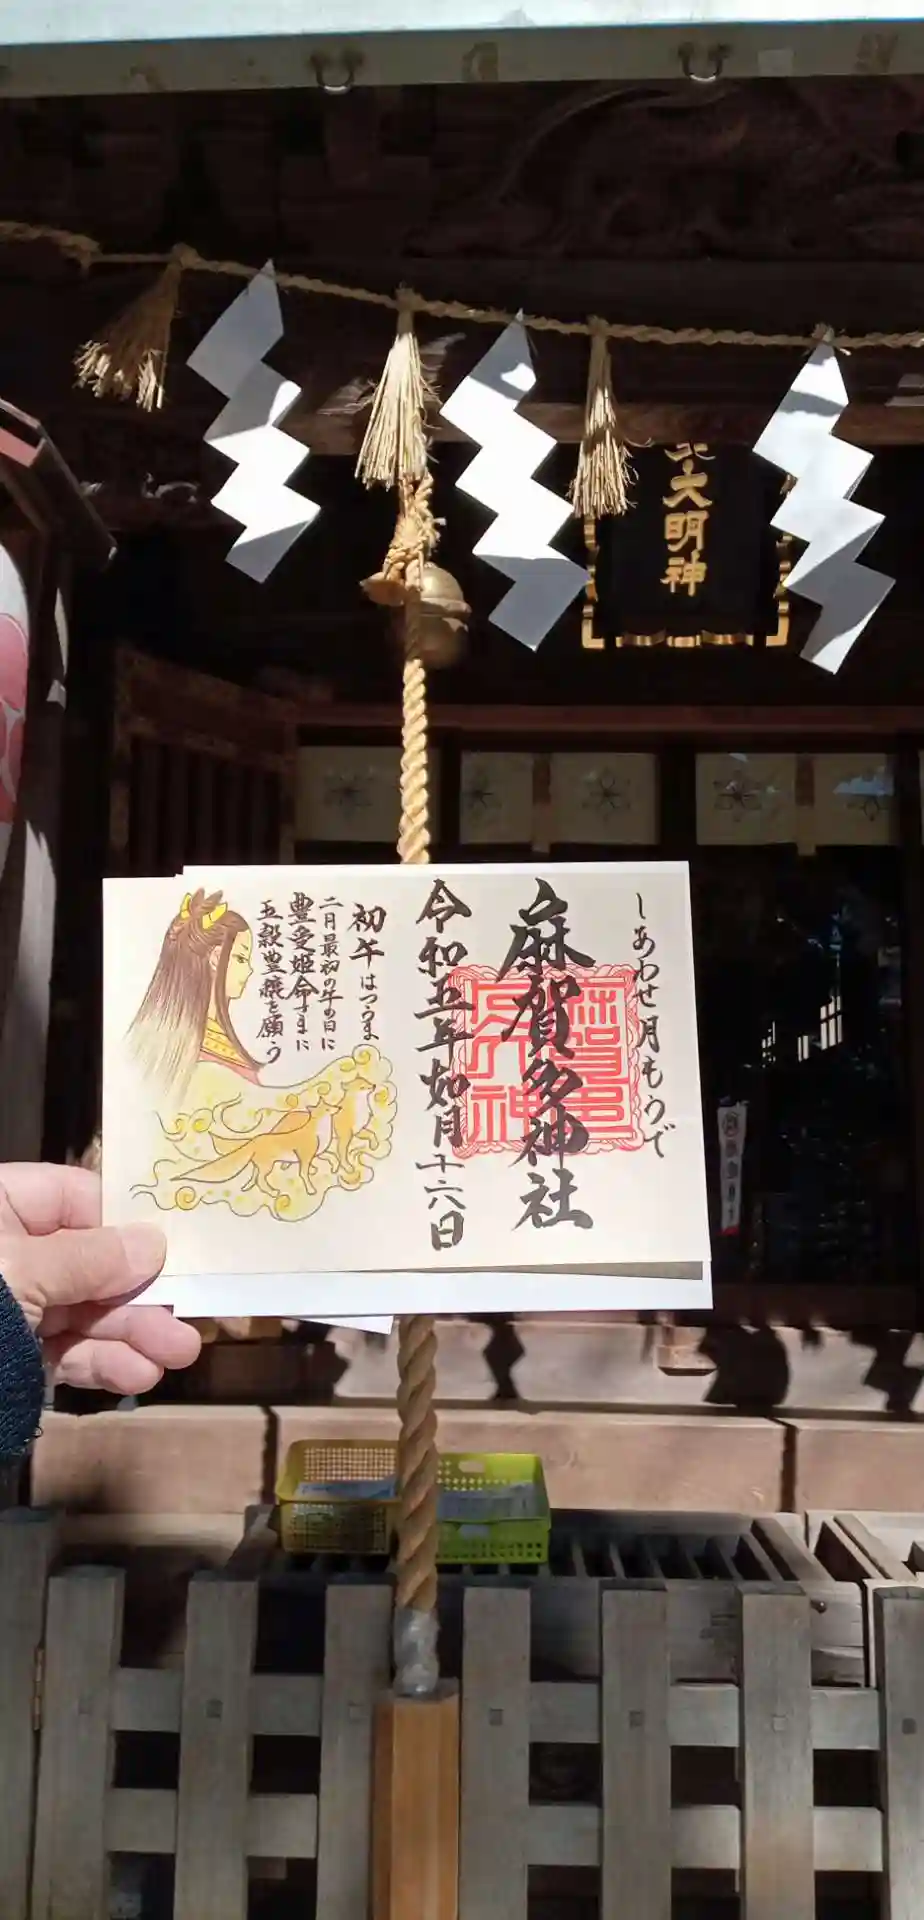 大明神
しあわせ月もうで
麻賀多神社
令和五年如月十六日
初午はつうま
二月最初の午の日に
豊受姫命さまに
五穀豊穣を願う